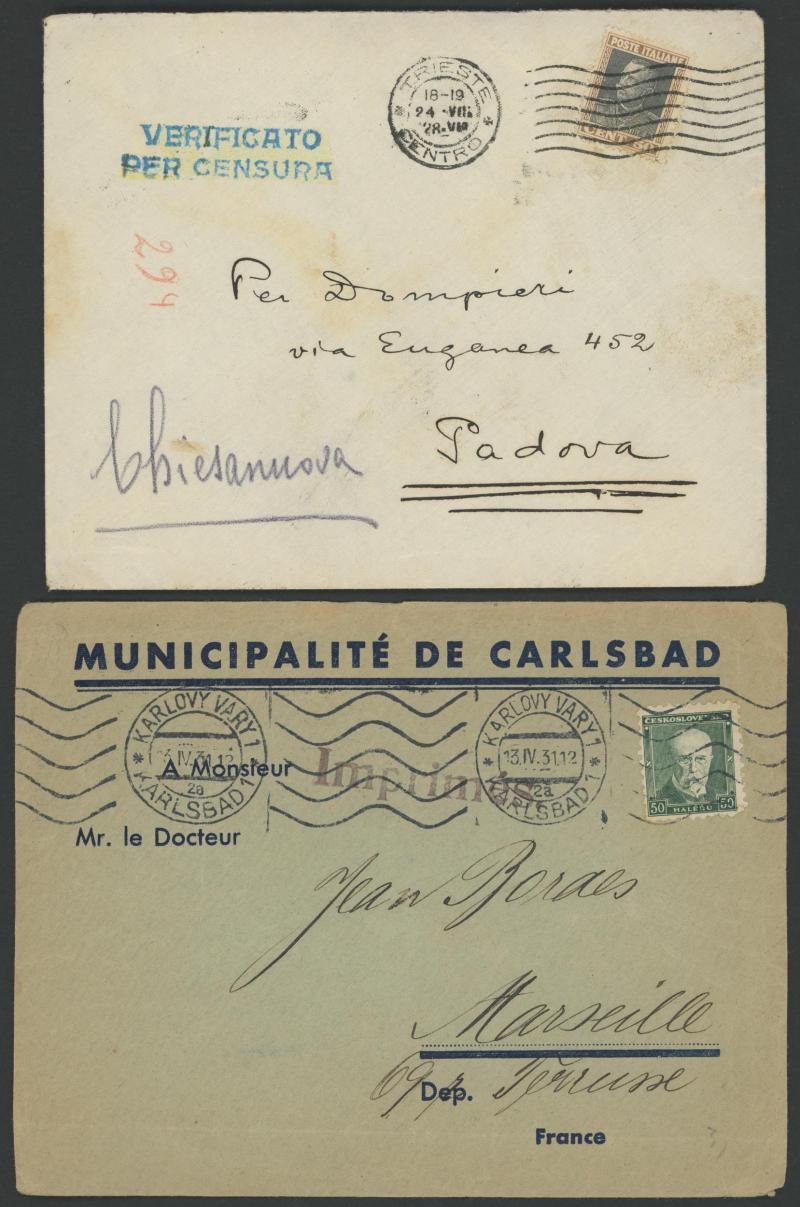 TRIESTE
18-19
24 · VII.
28. VI
CENTRO
POSTE ITALIANE
CENT 50
VERIFICATO
PER CENSURA
294
Per Dompieri
via Euganea 452
Padova
Chiesanuova
MUNICIPALITÉ DE CARLSBAD
KARLOVY VARY 1
13.IV.31.12
2a
KARLSBAD 1
KARLOVY VARY 1
13.IV.31.12
2a
KARLSBAD 1
ČESKOSLOVE
50 HALÉŘŮ 50
A Monsieur
Imprimés
Mr. le Docteur
Jean Boraes
Marseille
Dep.
69, r Terrusse
France